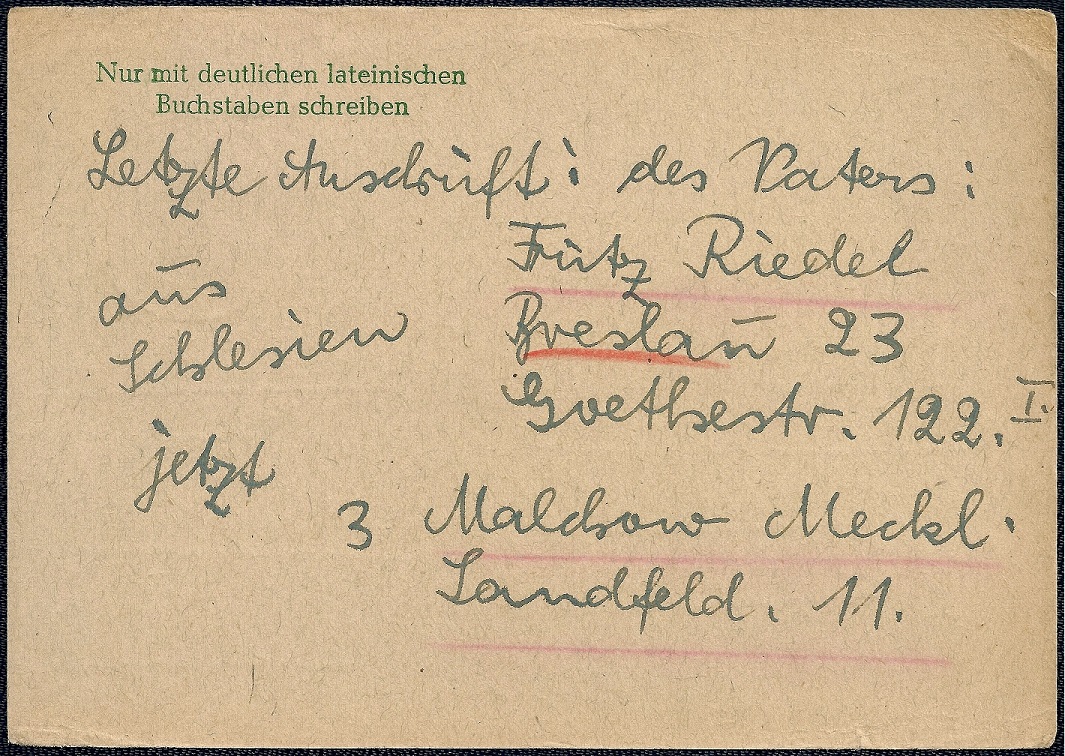 Nur mit deutlichen lateinischen
Buchstaben schreiben
Letzte Anschrift: des Vaters:
Fritz Riedel
aus
Schlesien
Breslau 23
Goethestr. 122. I.
jetzt
3 Malchow Meckl.
Sandfeld. 11.